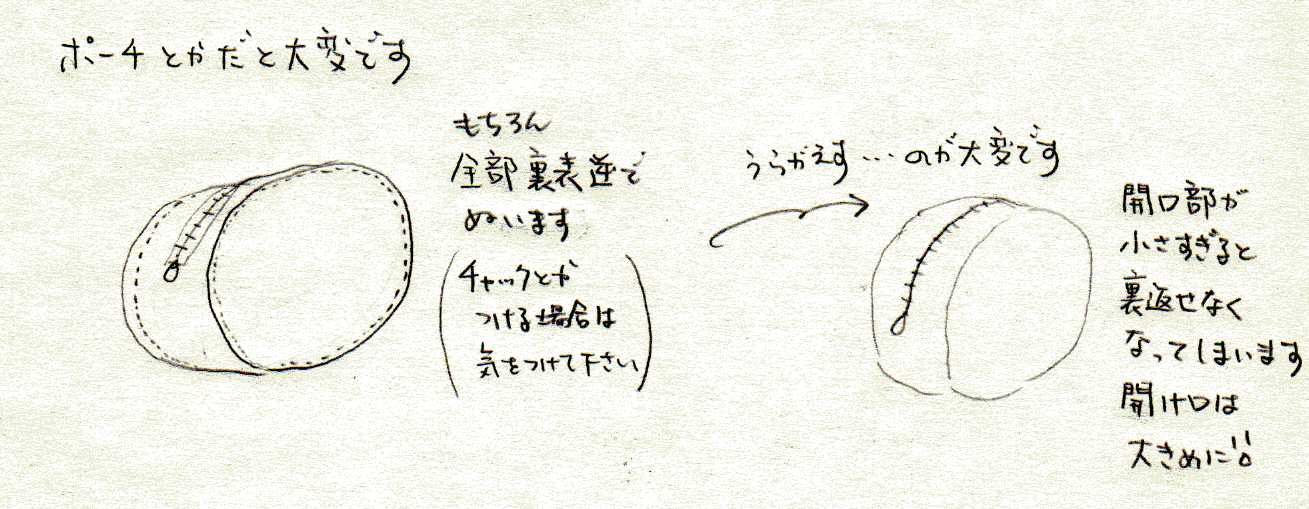 ポーチとかだと大変です
もちろん
全部裏表逆で
ぬいます
(チャックとか
つける場合は
気をつけて下さい)
うらがえす…のが大変です
開口部が
小さすぎると
裏返せなく
なってしまいます
開け口は
大きめに!!